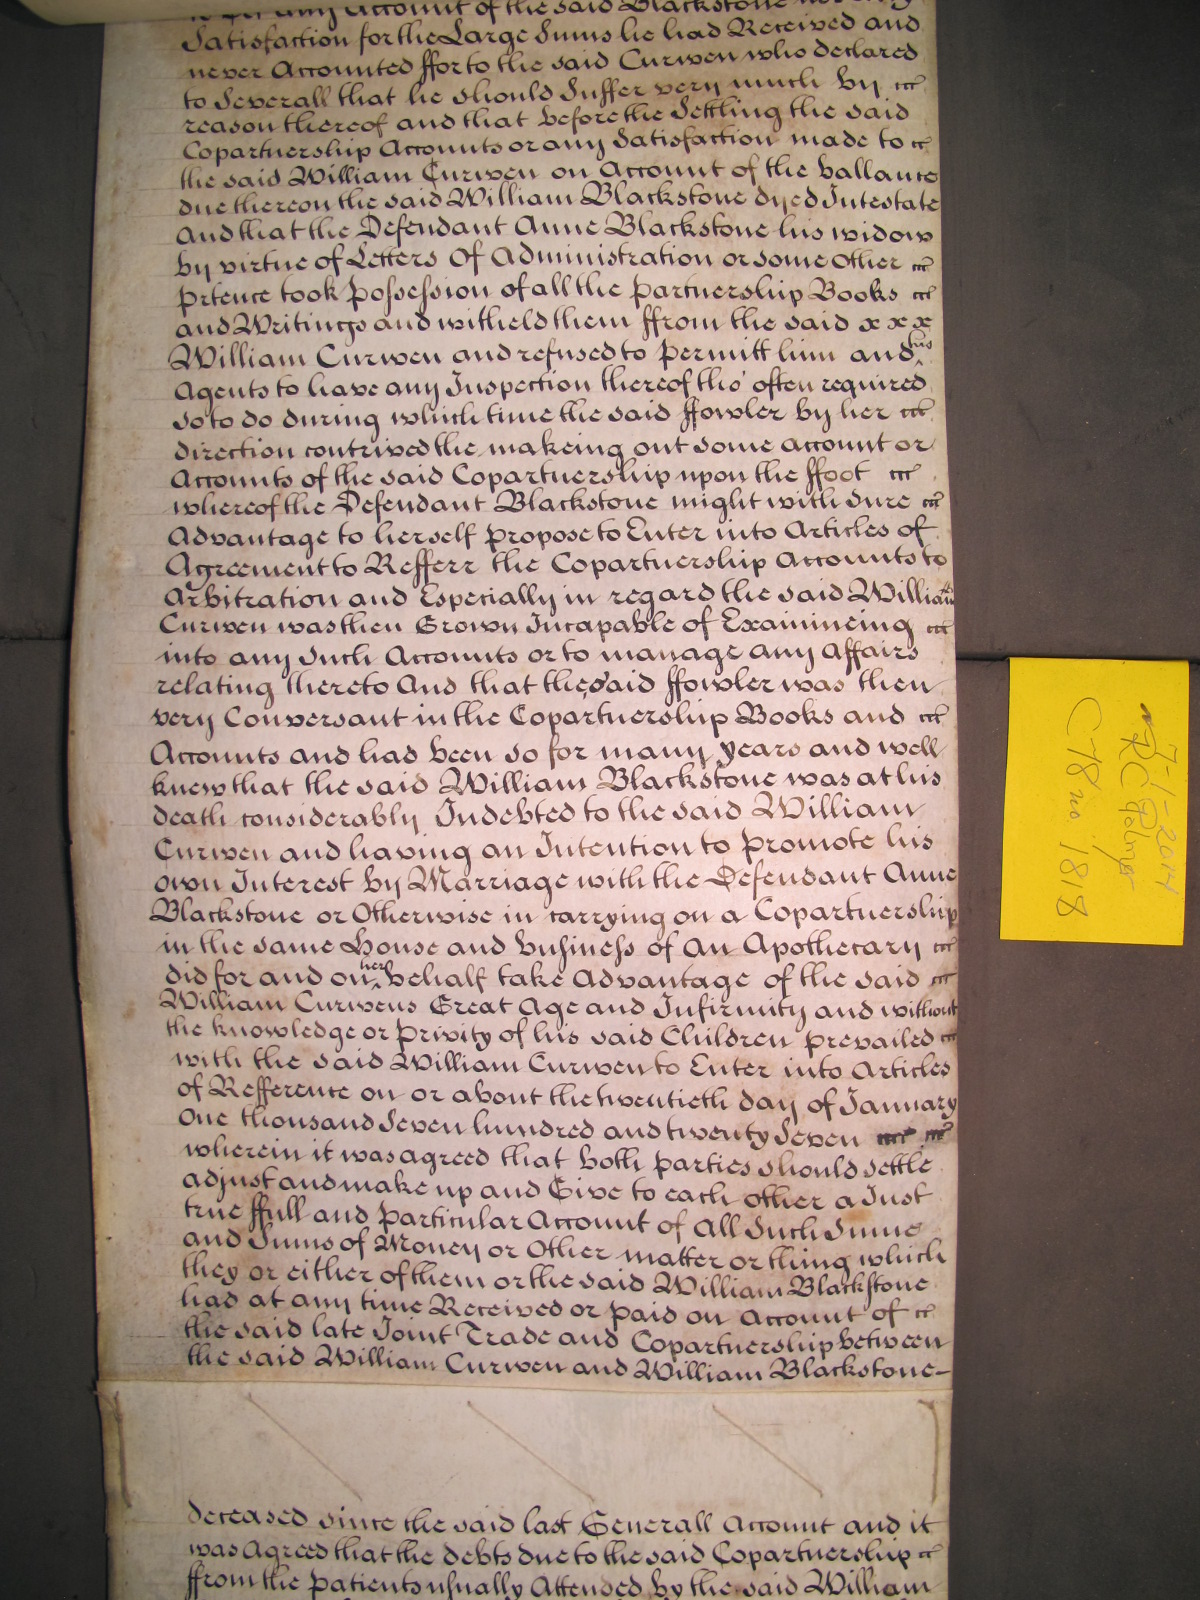 to Get any Account of the said Blackstone nor any
Satisfaction for the Large Sums he had Received and
never Accounted ffor to the said Curwen who declared
to Severall that he should Suffer very much by
reason thereof and that before the Settling the said
Copartnership Accounts or any Satisfaction made to
the said William Curwen on Account of the ballance
due thereon the said William Blackstone dyed Intestate
And that the Defendant Anne Blackstone his widow
by virtue of Letters Of Administration or some other
prtence took possession of all the partnership Books
and Writings and witheld them ffrom the said x x x
William Curwen and refused to permitt him and his
Agents to have any Inspection thereof tho' often required
so to do during which time the said ffowler by her
direction contrived the makeing out some account or
Accounts of the said Copartnership upon the ffoot
whereof the Defendant Blackstone might with Sure
Advantage to herself propose to Enter into Articles of
Agreement to Refferr the Copartnership Accounts to
Arbitration and Especially in regard the said William
Curwen was then Grown Incapable of Examineing
into any Such Accounts or to manage any affairs
relating thereto And that the said ffowler was then
very Conversant in the Copartnership Books and
Accounts and had been so for many years and well
knew that the said William Blackstone was at his
death considerably Indebted to the said William
Curwen and having an Intention to promote his
own Interest by Marriage with the Defendant Anne
Blackstone or Otherwise in carrying on a Copartnership
in the same House and business of an Apothecary
did for and on her behalf take Advantage of the said
William Curwens Great Age and Infirmity and without
the knowledge or privity of his said Children prevailed
with the said William Curwen to Enter into Articles
of Refference on or about the twentieth day of January
One thousand Seven hundred and twenty Seven
wherein it was agreed that both parties should settle
adjust and make up and Give to each other a Just
true ffull and particular Account of All Such Sume
and Sums of Money or Other matter or thing which
they or either of them or the said William Blackstone
had at any time Received or paid on Account of
the said late Joint Trade and Copartnership between
the said William Curwen and William Blackstone-
deceased since the said last Generall Account and it
was Agreed that the debts due to the said Copartnership
ffrom the patients usually Attended by the said William
7-1-2014
C 78 no 1818